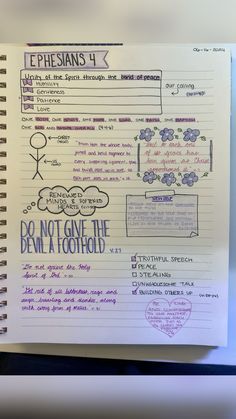 EPHESIANS 4
Unity of the Spirit through the bond of peace
Humility
Gentleness
Patience
Love
our calling
ONE BODY, ONE SPIRIT, ONE HOPE, ONE LORD, ONE FAITH, ONE BAPTISM,
ONE GOD AND FATHER OVER ALL (4-6)
"From him the whole body,
joined and held together by
every supporting ligament, grows
and builds itself up in love, as
each part does its work." v.16
"But to each one
of us grace has
been given as Christ
apportioned it."
RENEWED
MINDS & SOFTENED
HEARTS
DO NOT GIVE THE
DEVIL A FOOTHOLD
v.27
"Do not grieve the Holy
Spirit of God" v.30
"Get rid of all bitterness, rage and
anger, brawling and slander, along
with every form of malice." v.31
TRUTHFUL SPEECH
PEACE
STEALING
UNWHOLESOME TALK
BUILDING OTHERS UP
BE KIND
AND COMPASSIONATE
TO ONE ANOTHER